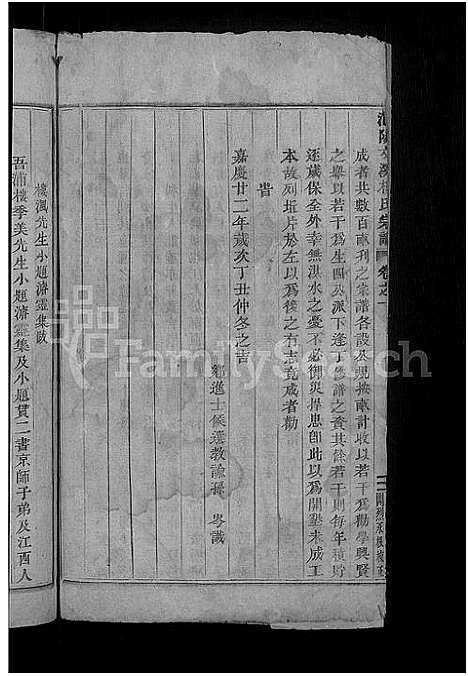 成者共數百畝刋之宗譜各設公理按畝計收以若干為勸學興賢
之舉以若干為生四公派下逢丁修譜之費其餘若干則每年積貯
逐歲保全外幸無洪水之憂不必御災捍患卽此以為開墾未成工
本故列坵片於左以為後之有志克成者勸
旹
嘉慶廿二年歲次丁丑仲冬之吉
鄉進士候選教諭 岑識
樓渢先生小題濬靈集跋
吾浦樓季美先生小題濬靈集及小題貫二書京師子弟及江西人
氏宗譜 卷之一
FamilySearch